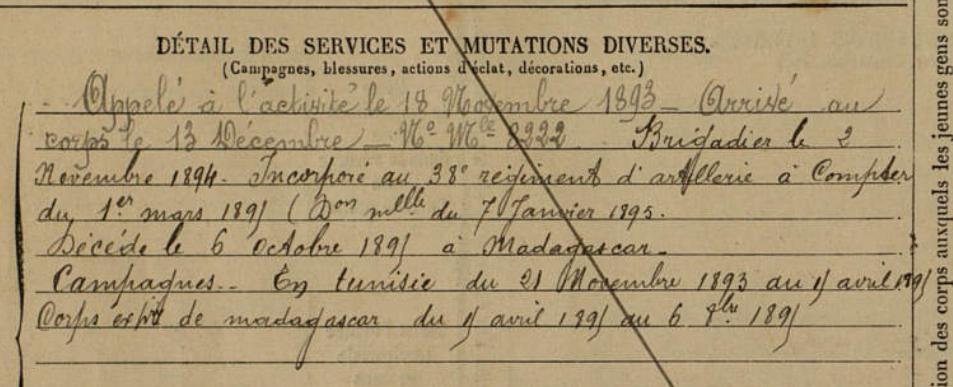 DÉTAIL DES SERVICES ET MUTATIONS DIVERSES.
(Campagnes, blessures, actions d'éclat, décorations, etc.)
Appelé à l'activité le 18 Novembre 1893 – Arrivé au
corps le 13 Décembre – Nº Mle 8222 Brigadier le 2
Novembre 1894. Incorporé au 38e régiment d'artillerie à Compter
du 1er mars 1895 (Don mlle du 7 Janvier 1895.
Décédé le 6 Octobre 1895 à Madagascar.
Campagnes.. En tunisie du 21 Novembre 1893 au 15 avril 1895
Corps expre de madagascar du 15 avril 1895 au 6 8bre 1895
ion des corps auxquels les jeunes gens son